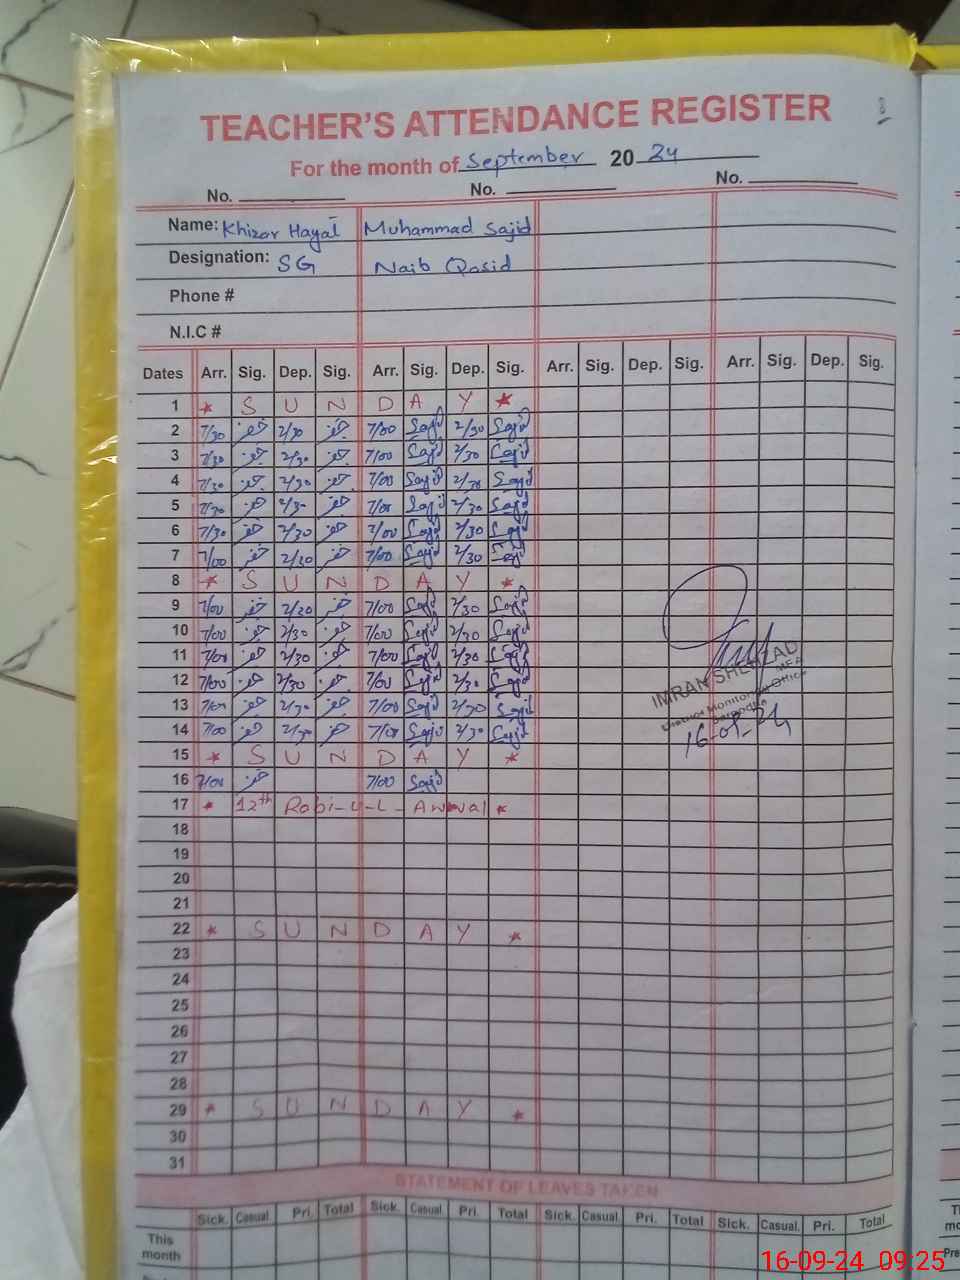 TEACHER'S ATTENDANCE REGISTER
For the month of September 20 24
No. No. No.
Name: Khizar Hayat Muhammad Sajid
Designation: SG Naib Qasid
Phone #
N.I.C #
Dates Arr. Sig. Dep. Sig. Arr. Sig. Dep. Sig. Arr. Sig. Dep. Sig. Arr. Sig. Dep. Sig.
1 * S U N D A Y *
2 7/30 خضر 2/30 خضر 7/00 Sajid 2/30 Sajid
3 7/30 خضر 2/30 خضر 7/00 Sajid 2/30 Sajid
4 7/30 خضر 2/30 خضر 7/00 Sajid 2/30 Sajid
5 7/30 خضر 2/30 خضر 7/00 Sajid 2/30 Sajid
6 7/30 خضر 2/30 خضر 7/00 Sajid 2/30 Sajid
7 7/00 خضر 2/30 خضر 7/00 Sajid 2/30 Sajid
8 * S U N D A Y *
9 7/00 خضر 2/30 خضر 7/00 Sajid 2/30 Sajid
10 7/00 خضر 2/30 خضر 7/00 Sajid 2/30 Sajid
11 7/00 خضر 2/30 خضر 7/00 Sajid 2/30 Sajid
12 7/00 خضر 2/30 خضر 7/00 Sajid 2/30 Sajid
IMRAN SHEHZAD
MEA
District Monitoring Office
Sargodha
16-09-24
13 7/00 خضر 2/30 خضر 7/00 Sajid 2/30 Sajid
14 7/00 خضر 2/30 خضر 7/00 Sajid 2/30 Sajid
15 * S U N D A Y *
16 7/00 خضر 7/00 Sajid
17 * 12th Rabi-u-l-Awwal *
18
19
20
21
22 * S U N D A Y *
23
24
25
26
27
28
29 * S U N D A Y *
30
31
STATEMENT OF LEAVES TAKEN
Sick. Casual. Pri. Total Sick. Casual. Pri. Total Sick. Casual. Pri. Total Sick. Casual. Pri. Total
This
month
16-09-24 09:25